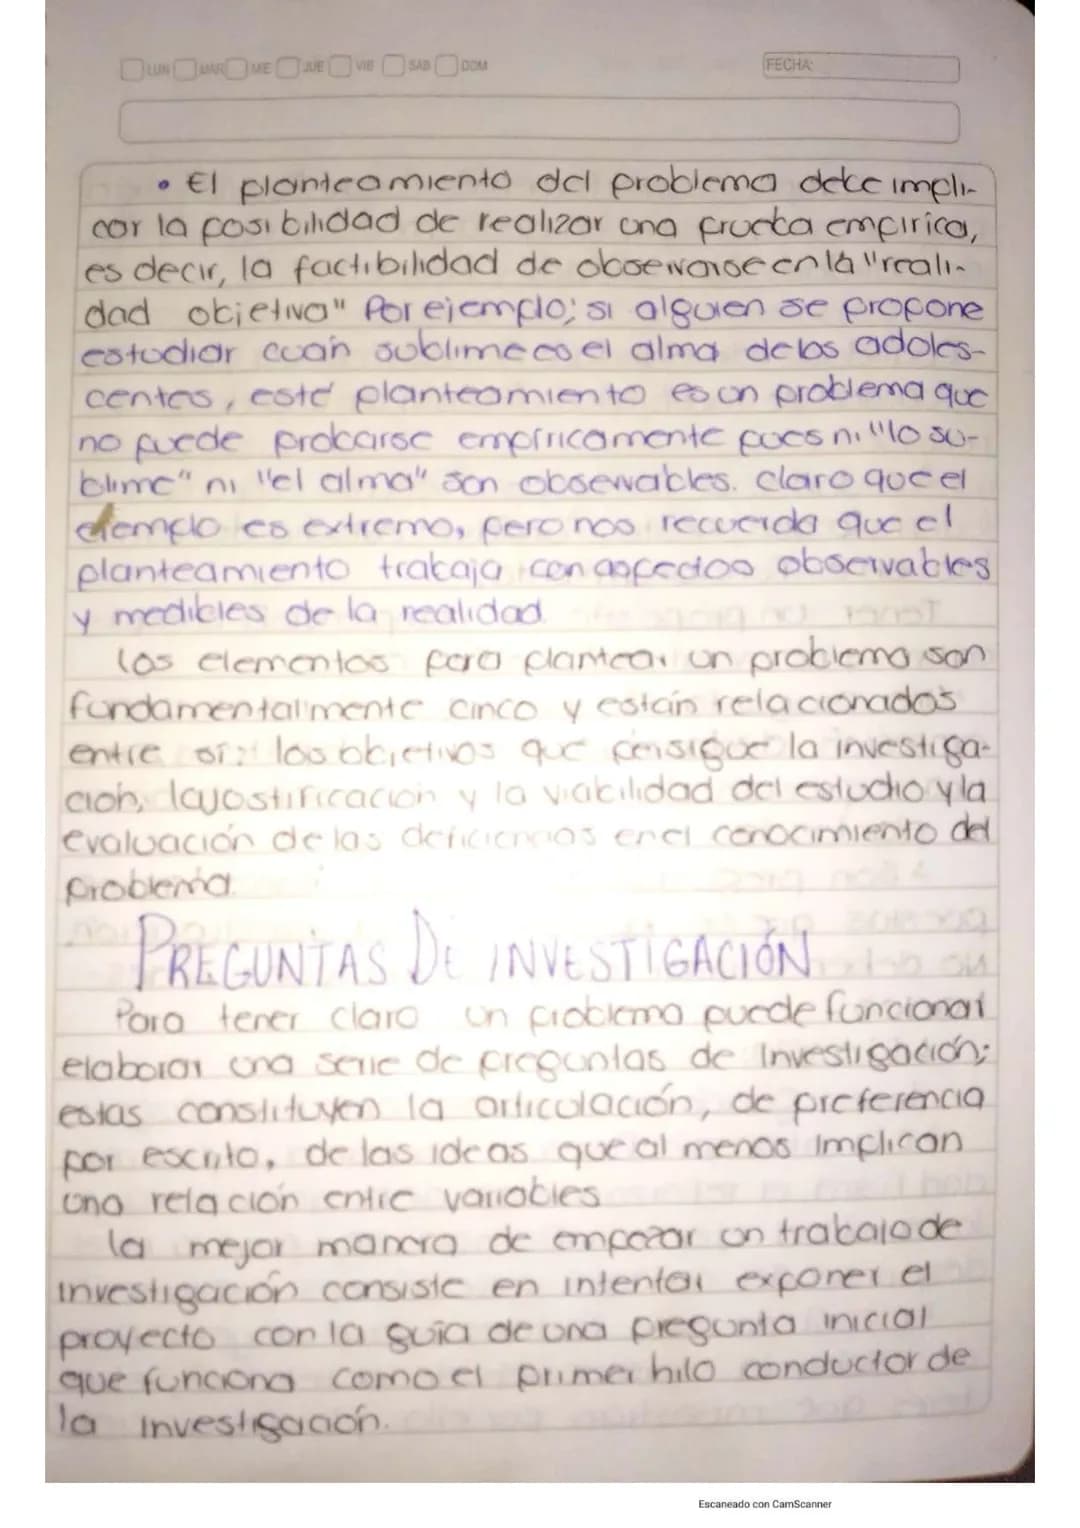 LUN MAR MIE JUE VIE SAB DOM
FECHA:
• El planteamiento del problema debe impli-
car la posibilidad de realizar una prueba empirica,
es decir, la factibilidad de observarse en la "reali-
dad objetiva" Por ejemplo; si alguien se propone
estudiar cuán sublime es el alma de los adoles-
centes, esté planteamiento es un problema que
no puede probarse empíricamente pues ni "lo su-
blime" ni "el alma" son observables. Claro que el
ejemplo es extremo, pero nos recuerda que el
planteamiento trabaja con aspectos observables
y medibles de la realidad.
Los elementos para plantear un problema son
fundamentalmente cinco y están relacionados
entre sí: los objetivos que persigue la investiga-
ción, la justificación y la viabilidad del estudio y la
evaluación de las deficiencias en el conocimiento del
problema.
PREGUNTAS DE INVESTIGACIÓN
Para tener claro un problema puede funcionar
elaborar una serie de preguntas de Investigación;
estas constituyen la articulación, de preferencia
por escrito, de las ideas que al menos implican
una relación entre variables
La mejor manera de empezar un trabajo de
investigación consiste en intentar exponer el
proyecto con la guía de una pregunta inicial
que funciona como el primer hilo conductor de
la investigación.
Escaneado con CamScanner